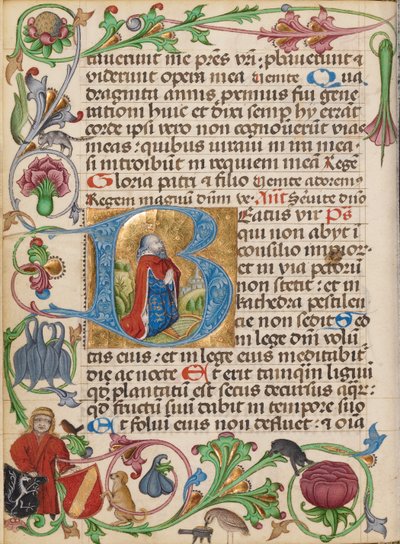 tauerunt me p̄res vr̄i : p̄bauerunt ⁊
viderunt opera mea Venite Qua
draginta annis p̄ximus fui gene
rationi huic et dixi semp̄ hy errāt
corde ipsi vero non cognouerunt vias
meas : quibus iuraui in ira mea :
si introibūt in requiem meā Regē
Gloria patri ⁊ filio Venite adorem⁹
Regem magnū dn̄m ve· Añt Seruite dn̄o
Beatus vir Ps
qui non abyt ī
consilio impior⁊
et in via pc̄torū
non stetit : et in
kathedra pestilen
cie non sedit Sed
in lege dn̄i volū
tas eius : et in lege eius meditabit̄
die ac nocte Et erit tamq̄m lignū
qd̄ plantatū est secus decursus aqr̄ :
qd̄ fructū suū dabit in tempore suo
Et foliū eius non defluet : et oīa